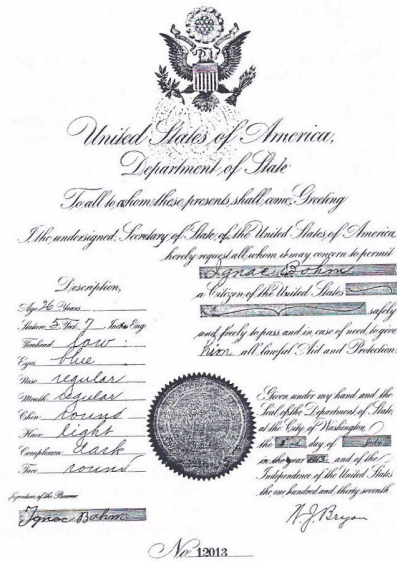 United States of America,
Department of State
To all to whom these presents shall come, Greeting
I, the undersigned, Secretary of State of the United States of America,
hereby request all whom it may concern to permit
Ignac Bohm
a Citizen of the United States
safely
and freely to pass and in case of need to give
him all lawful Aid and Protection.
Description,
Age 26 Years
Stature 5 Feet 7 Inches Eng.
Forehead low
Eyes blue
Nose regular
Mouth regular
Chin round
Hair light
Complexion dark
Face round
Signature of the Bearer
Ignac Bohm
Given under my hand and the
Seal of the Department of State,
at the City of Washington,
the day of July
in the year 1913 and of the
Independence of the United States
the one hundred and thirty seventh
W. J. Bryan
No 12013